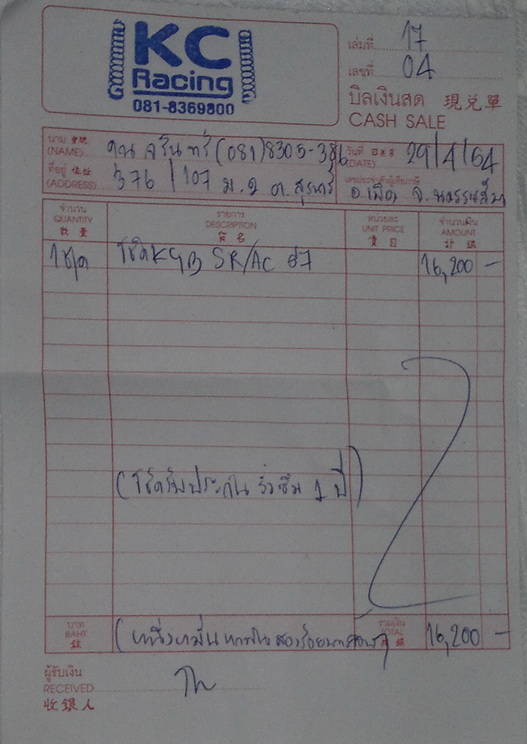 KC
Racing
081-8369800
เล่มที่ 17
เลขที่ 04
บิลเงินสด 現兌單
CASH SALE
นาม 會號
(NAME) คุณ จรินทร์ (081)8305-386
วันที่ 日期
(DATE) 29/4/64
ที่อยู่ 住址
(ADDRESS) 376/107 ม.2 ต.สุรนารี
เลขประจำตัวผู้เสียภาษี
อ.เมือง จ.นครราชสีมา
จำนวน
QUANTITY
數量
รายการ
DESCRIPTION
品名
หน่วยละ
UNIT PRICE
จำนวนเงิน
AMOUNT
1ชุด โช๊ค KYB SR/AC 16,200 –
(โช๊ครับประกัน รั่วซึม 1 ปี)
บาท
BAHT
(หนึ่งหมื่นหกพันสองร้อยบาทถ้วน)
รวมเงิน
TOTAL
16,200 –
ผู้รับเงิน
RECEIVED
收銀人